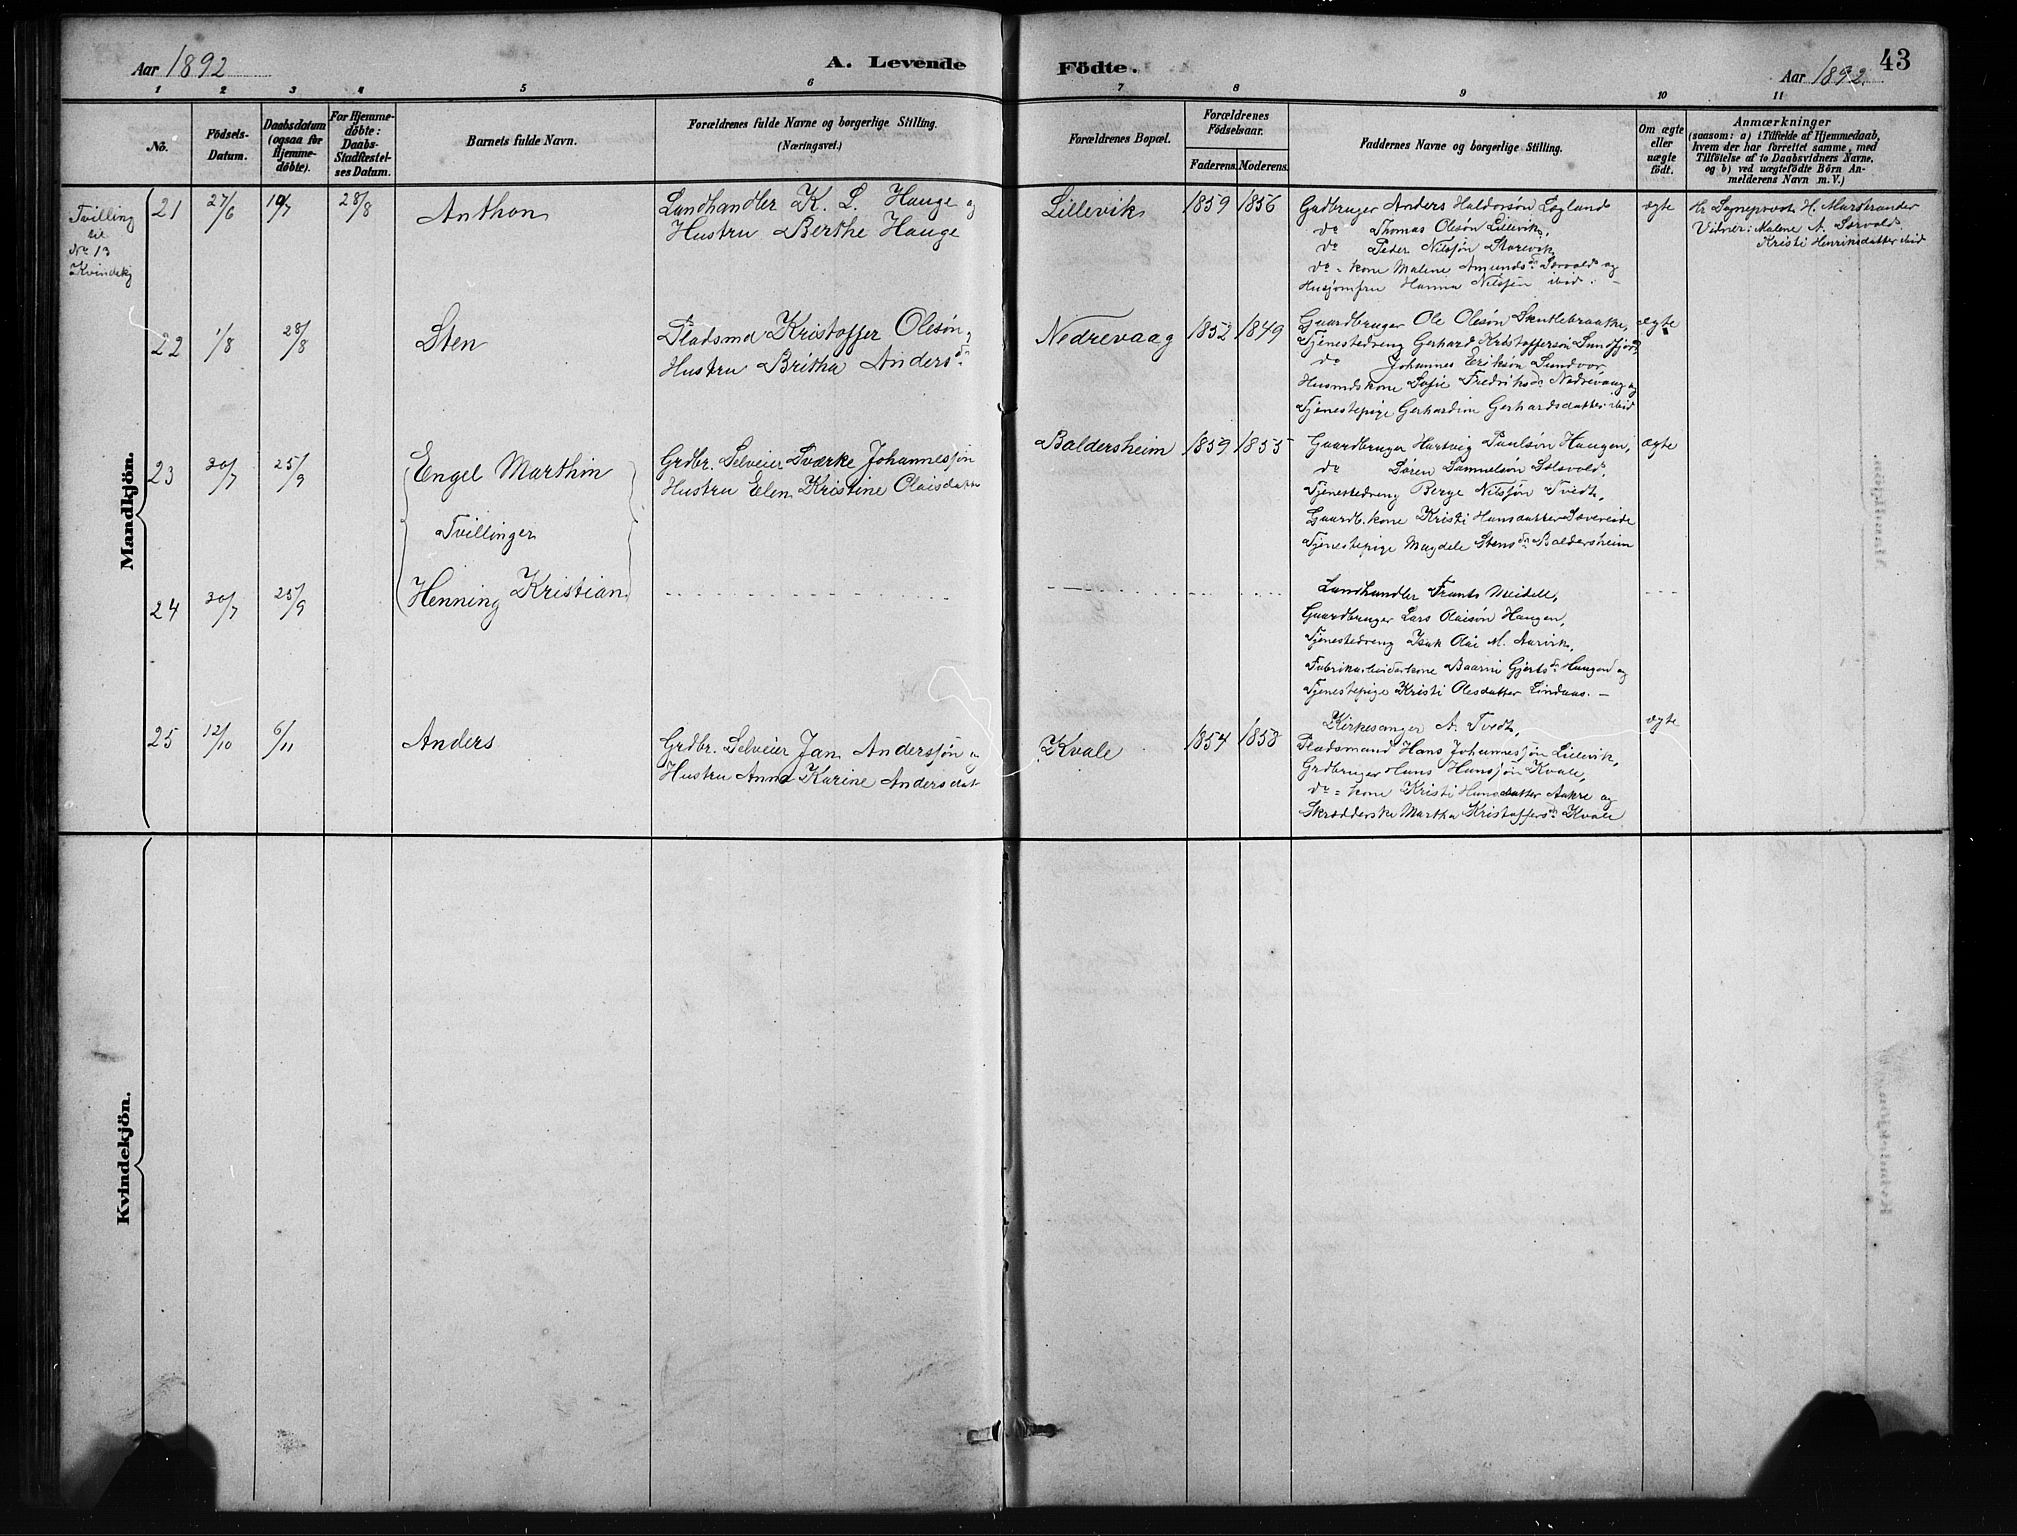 Aar 1892
A. Levende Födte.
Aar 1892.
43
1 2 3 4 5 6 7 8 9 10 11
No.
Födsels-Datum.
Daabsdatum (ogsaa for Hjemme-döbte).
For Hjemme-döbte: Daabs-Stadfæstel-ses Datum.
Barnets fulde Navn.
Forældrenes fulde Navne og borgerlige Stilling.
(Næringsvei.)
Forældrenes Bopæl.
Forældrenes Födselsaar.
Faderens. Moderens.
Faddernes Navne og borgerlige Stilling.
Om ægte eller uægte födt.
Anmærkninger
(saasom: a) i Tilfælde af Hjemmedaab,
hvem der har forrettet samme, med
Tilföielse af to Daabsvidners Navne,
og b) ved uægtefödte Börn An-
melderens Navn m. V.)
Mandkjön.
Tvilling
til
No 13
Kvindekj
21 27/6 10/7 28/8 Anthon
Landhandler K. L. Hauge og
Hustru Berthe Hauge
Lillevik 1859 1856
Gadbruger Anders Haldorsön Løgland
do Thomas Olesön Lillevik,
do Peder Nilssön Storevik
do = kone Malene Amundsdr Sørvold og
Husjomfru Hanna Nilssen ibid. -
ægte
Hr Sogneprovst H. Marstrander
Vidner: Malene A. Sørvold
Kristi Henriksdatter ibid
22 1/8 28/8 Sten
Pladsmd Kristoffer Olesön,
Hustru Britha Andersdr
Nedrevaag 1852 1849
Gaardbruger Ole Olesön Skutlebraake,
Tjenestedreng Gerhard Kristoffersön Sundfjord,
do Johannes Eriksön Sundvor,
Husmdskone Sofie Fredriksdr Nedrevaag og
Tjenestepige Gerhardine Gerhardsdatter ibid
ægte
23 30/7 25/9 Engel Marthin
Tvillinger
Grdbr. Selveier Sværke Johannessön
Hustru Elen Kristine Olaisdatter
Baldersheim 1859 1855
Gaardbruger Hartvig Paulsön Haugen,
do Sören Samuelsön Sølsvold,
Tjenestedreng Berge Nilssön Tvedt,
Gaardb. kone Kristi Hansdatter Sævereide
Tjenestepige Magdele Stensdr Baldersheim
ægte
24 30/7 25/9 Henning Kristian
Landhandler Frants Meidell,
Gaardbruger Lars Olaisön Haugen,
Tjenestedreng Isak Olai M. Aarvik,
Fabrikarbeiderkone Baarni Gjertsdr Haugen og
Tjenestepige Kristi Olesdatter Lindaas. -
25 12/10 6/11 Anders
Grdbr. Selveier Jan Anderssön og
Hustru Anna Karine Andersdat
Kvale 1854 1858
Kirkesanger A. Tvedt,
Pladsmand Hans Johannessön Lillevik,
Grdbruger Hans Hanssön Kvale,
do = kone Kristi Hansdatter Aakre og
Skrædderske Martha Kristoffersdr Kvale
ægte
Kvindekjön.